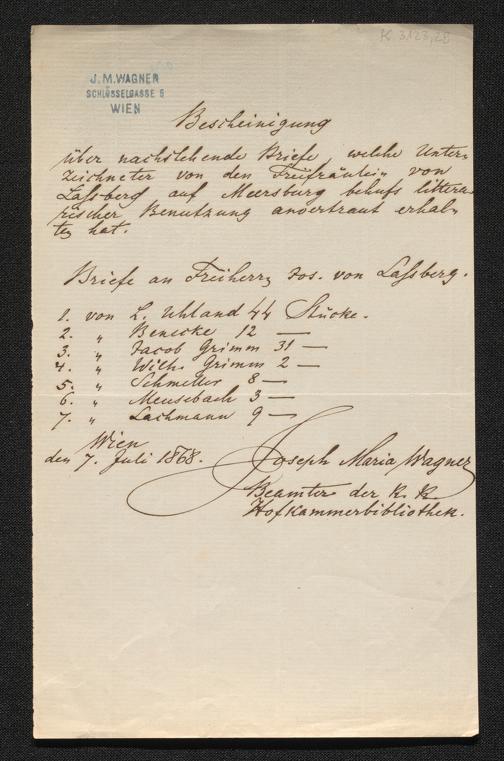 K 3123,28
J. M. WAGNER
SCHLÜSSELGASSE 6
WIEN
Bescheinigung
über nachstehende Briefe, welche Unter-
zeichneter von den Freifräulein von
Laßberg auf Meersburg behufs littera-
rischer Benutzung anvertraut erhal-
ten hat.
Briefe an Freiherrn Jos. von Laßberg.
1. von L. Uhland 44 Stücke.
2. „ Benecke 12 —
3. „ Jacob Grimm 31 —
4. „ Wilh. Grimm 2 —
5. „ Schmeller 8 —
6. „ Meusebach 3 —
7. „ Lachmann 9 —
Wien
den 7. Juli 1868.
Joseph Maria Wagner
Beamter der K. K.
Hofkammerbibliothek.